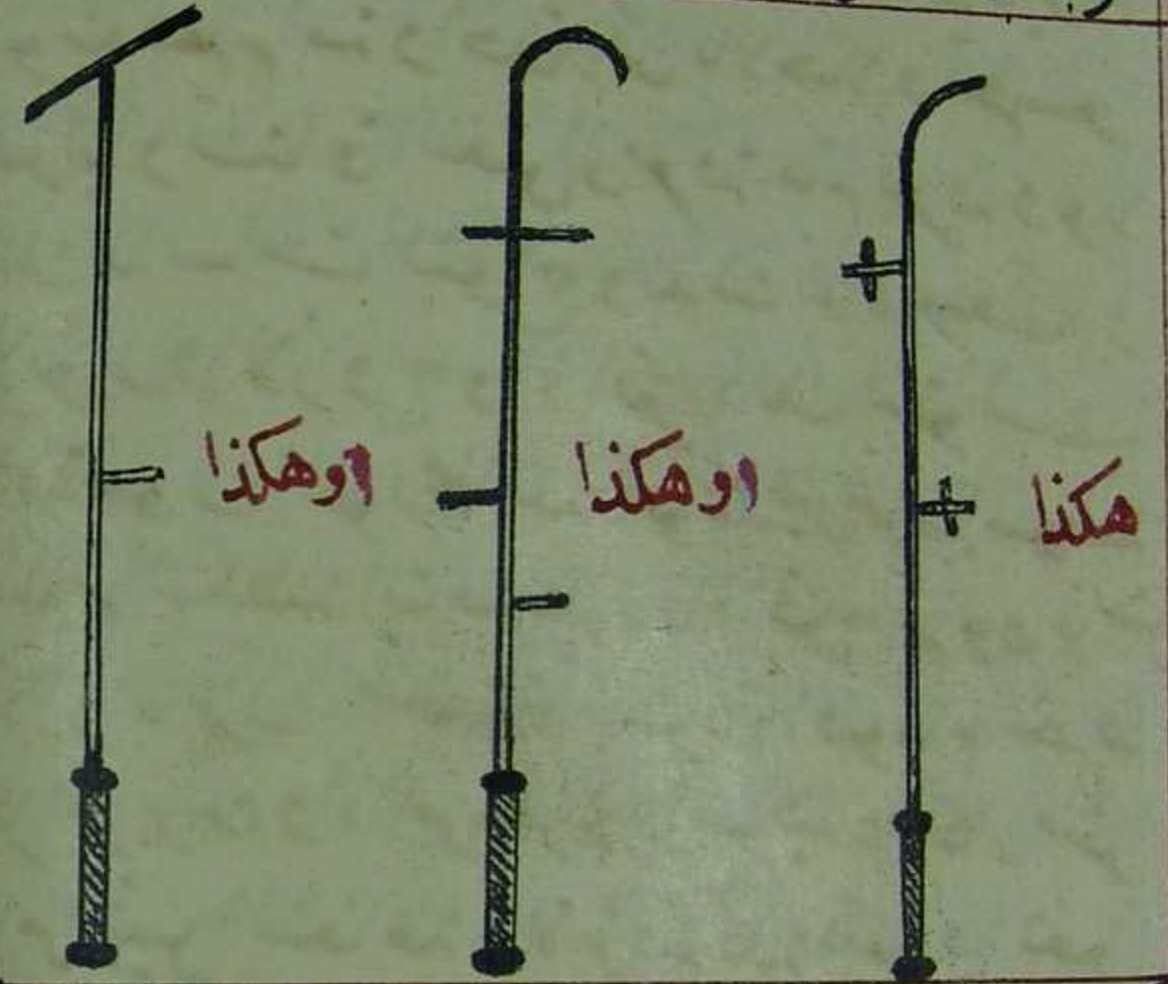 هكذا
اوهكذا
اوهكذا